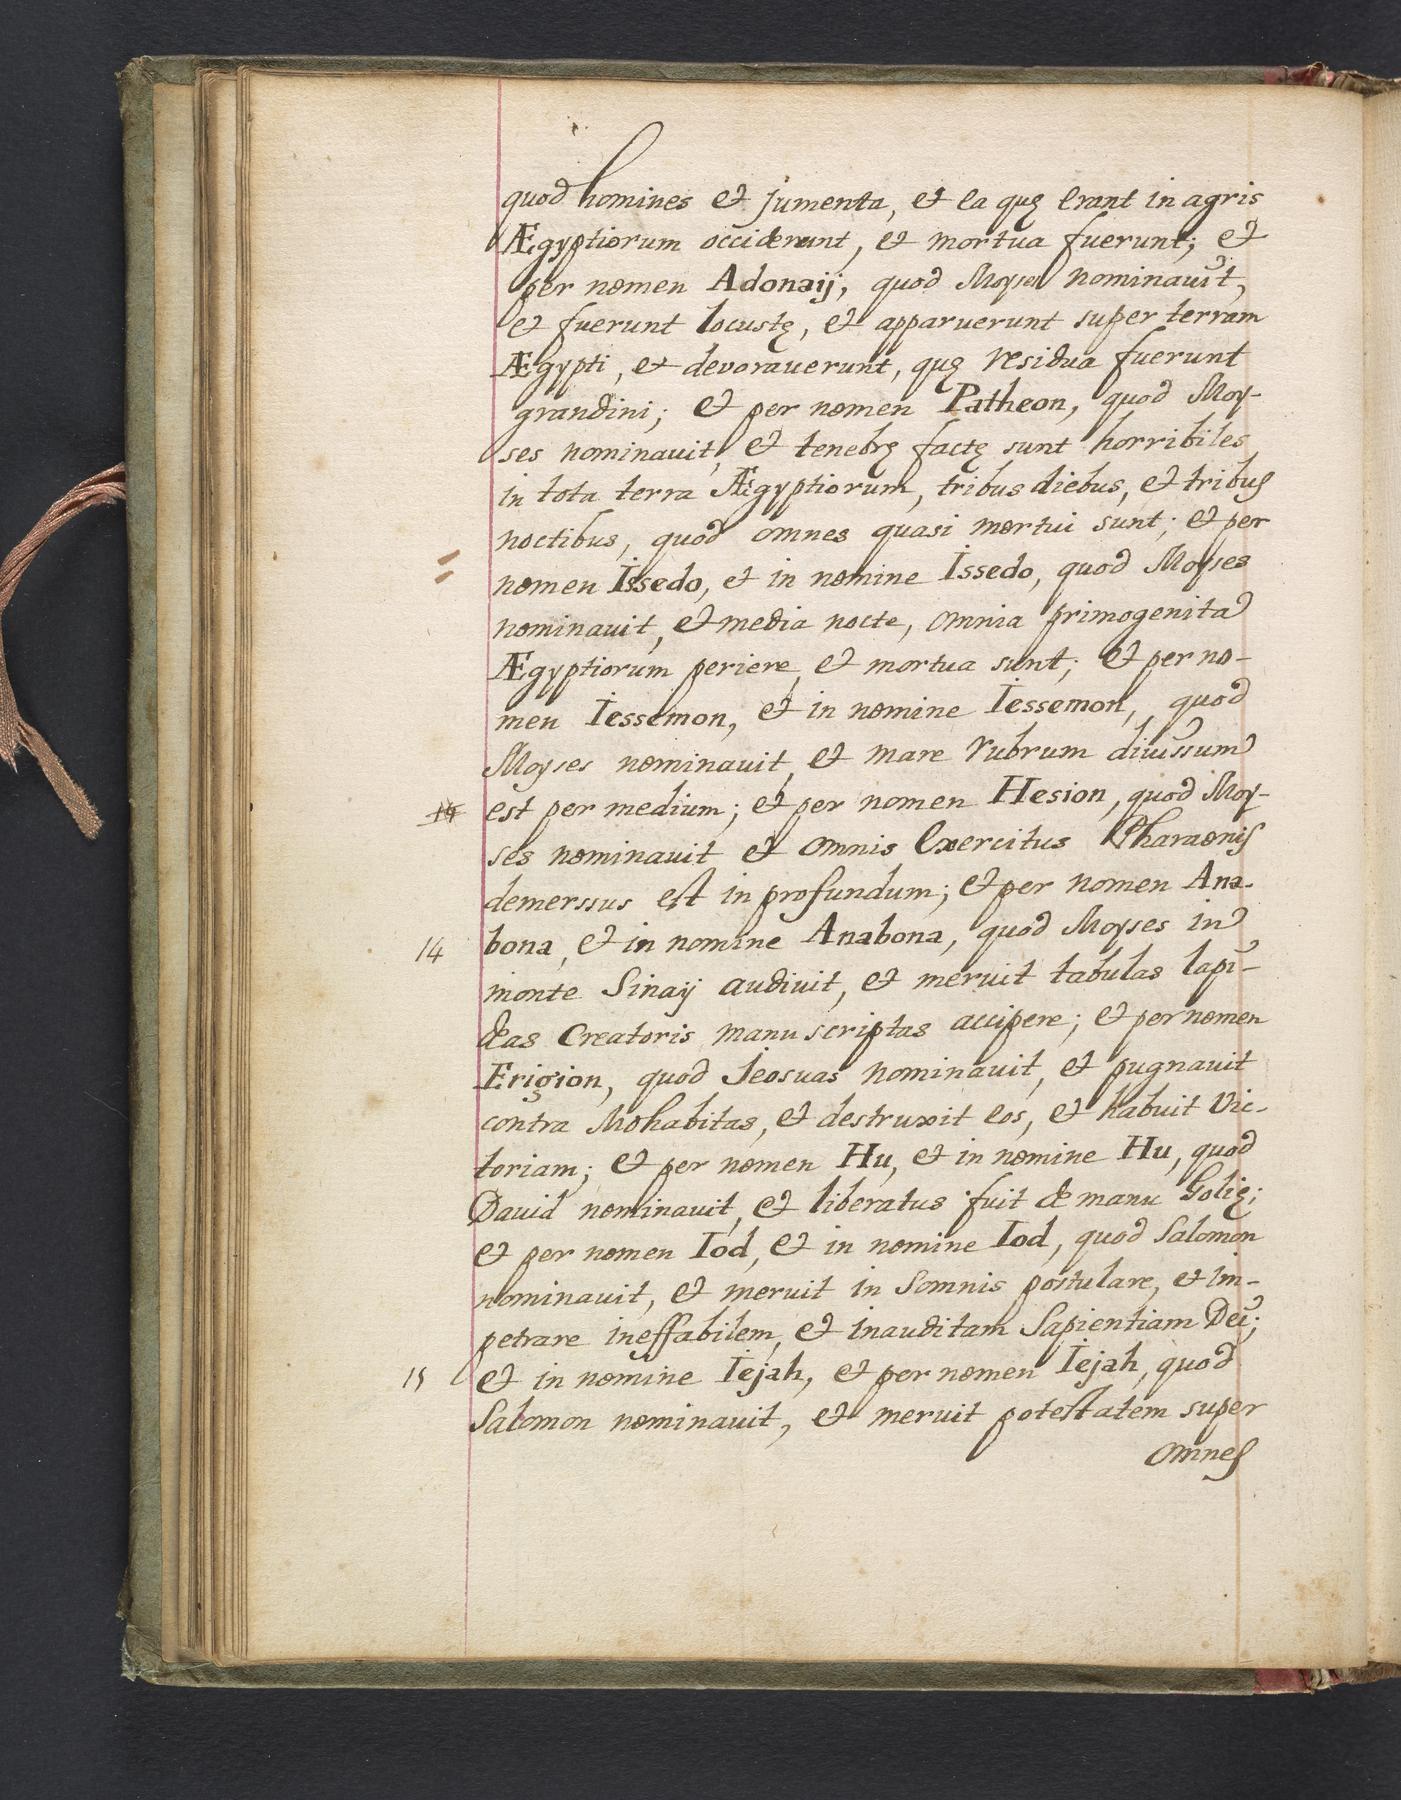 quod homines et jumenta, et ea quę erant in agris
Ægyptiorum occiderunt, et mortua fuerunt; et
per nomen Adonaij, quod Moyses nominauit,
et fuerunt locustę, et apparuerunt super terram
Ægypti, et devorauerunt, quę residua fuerunt
grandini; et per nomen Patheon, quod Moy-
ses nominauit, et tenebrę factę sunt horribiles
in tota terra Ægyptiorum, tribus diebus, et tribus
noctibus, quod omnes quasi mortui sunt; et per
nomen Issedo, et in nomine Issedo, quod Moyses
nominauit, et media nocte, omnia primogenita
Ægyptiorum periere, et mortua sunt; et per no-
men Iessemon, et in nomine Iessemon, quod
Moyses nominauit, et mare rubrum diuissum
14 est per medium; et per nomen Hesion, quod Moy-
ses nominauit et omnis Exercitus Pharaonis
demerssus est in profundum; et per nomen Ana-
14 bona, et in nomine Anabona, quod Moyses in
monte Sinaij audiuit, et meruit tabulas lapi-
deas Creatoris manu scriptas accipere; et per nomen
Erigion, quod Jeosuas nominauit, et pugnauit
contra Mohabitas, et destruxit eos, et habuit vic-
toriam; et per nomen Hu, et in nomine Hu, quod
Dauid nominauit, et liberatus fuit de manu Golię;
et per nomen Iod, et in nomine Iod, quod Salomon
nominauit, et meruit in somnis postulare, et im-
petrare ineffabilem, et inauditam Sapientiam Dei;
15 et in nomine Iejah, et per nomen Iejah, quod
Salomon nominauit, et meruit potestatem super
omnes